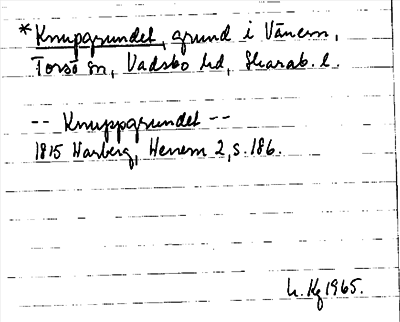 *Knupgrundet, grund i Vänern,
Torsö sn, Vadsbo hd, Skarab. l.
-- Knuppgrundet --
1815 Warberg, Wenern 2, s. 186.
1965.